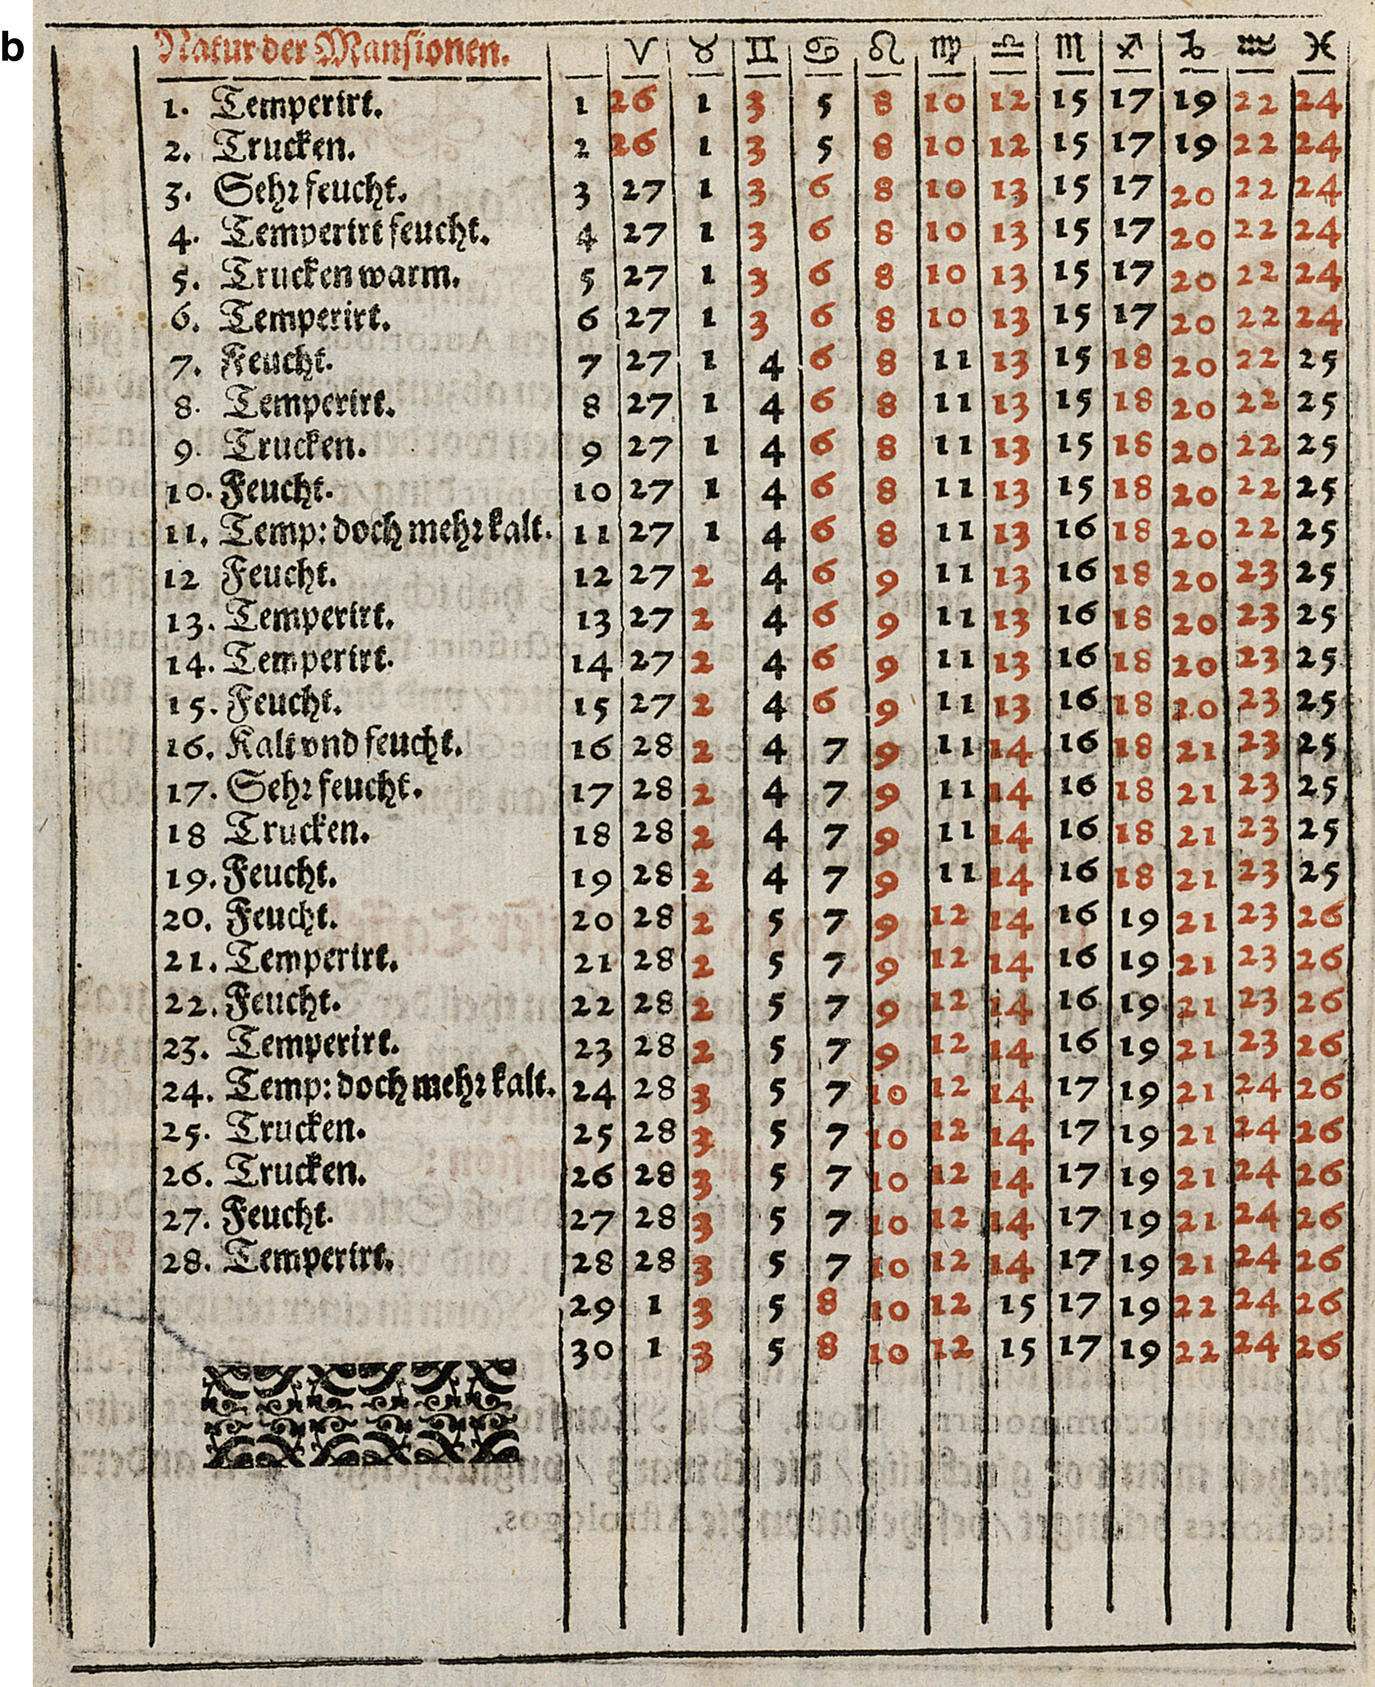 b
Natur der Mansionen. ♈ ♉ ♊ ♋ ♌ ♍ ♎ ♏ ♐ ♑ ♒ ♓
1. Temperirt. 1 26 1 3 5 8 10 12 15 17 19 22 24
2. Trucken. 2 26 1 3 5 8 10 12 15 17 19 22 24
3. Sehr feucht. 3 27 1 3 6 8 10 13 15 17 20 22 24
4. Temperirt feucht. 4 27 1 3 6 8 10 13 15 17 20 22 24
5. Trucken warm. 5 27 1 3 6 8 10 13 15 17 20 22 24
6. Temperirt. 6 27 1 3 6 8 10 13 15 17 20 22 24
7. Feucht. 7 27 1 4 6 8 11 13 15 18 20 22 25
8. Temperirt. 8 27 1 4 6 8 11 13 15 18 20 22 25
9. Trucken. 9 27 1 4 6 8 11 13 15 18 20 22 25
10. Feucht. 10 27 1 4 6 8 11 13 15 18 20 22 25
11. Temp: doch mehr kalt. 11 27 1 4 6 8 11 13 16 18 20 22 25
12 Feucht. 12 27 2 4 6 9 11 13 16 18 20 23 25
13. Temperirt. 13 27 2 4 6 9 11 13 16 18 20 23 25
14. Temperirt. 14 27 2 4 6 9 11 13 16 18 20 23 25
15. Feucht. 15 27 2 4 6 9 11 13 16 18 20 23 25
16. Kalt vnd feucht. 16 28 2 4 7 9 11 14 16 18 21 23 25
17. Sehr feucht. 17 28 2 4 7 9 11 14 16 18 21 23 25
18 Trucken. 18 28 2 4 7 9 11 14 16 18 21 23 25
19. Feucht. 19 28 2 4 7 9 11 14 16 18 21 23 25
20. Feucht. 20 28 2 5 7 9 12 14 16 19 21 23 26
21. Temperirt. 21 28 2 5 7 9 12 14 16 19 21 23 26
22. Feucht. 22 28 2 5 7 9 12 14 16 19 21 23 26
23. Temperirt. 23 28 2 5 7 9 12 14 16 19 21 23 26
24. Temp: doch mehr kalt. 24 28 3 5 7 10 12 14 17 19 21 24 26
25. Trucken. 25 28 3 5 7 10 12 14 17 19 21 24 26
26. Trucken. 26 28 3 5 7 10 12 14 17 19 21 24 26
27. Feucht. 27 28 3 5 7 10 12 14 17 19 21 24 26
28. Temperirt. 28 28 3 5 7 10 12 14 17 19 21 24 26
29 1 3 5 8 10 12 15 17 19 22 24 26
30 1 3 5 8 10 12 15 17 19 22 24 26